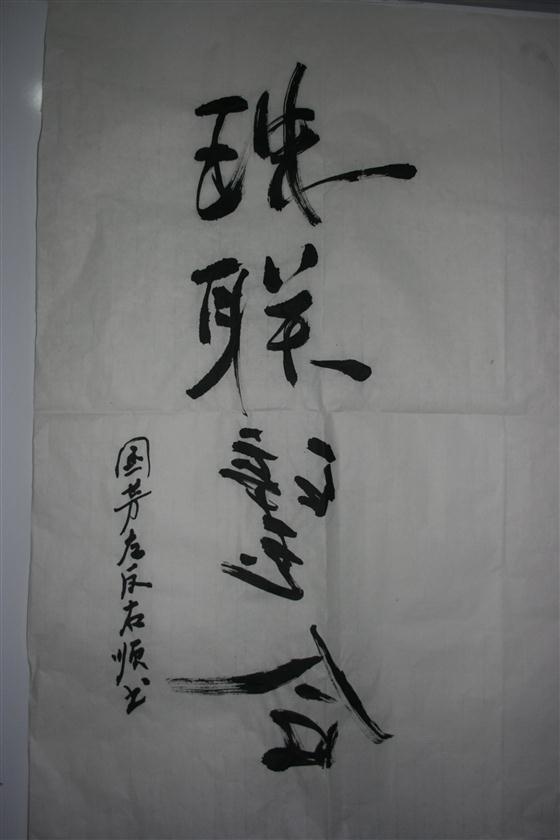 珠联璧合
国芳左反右顺书